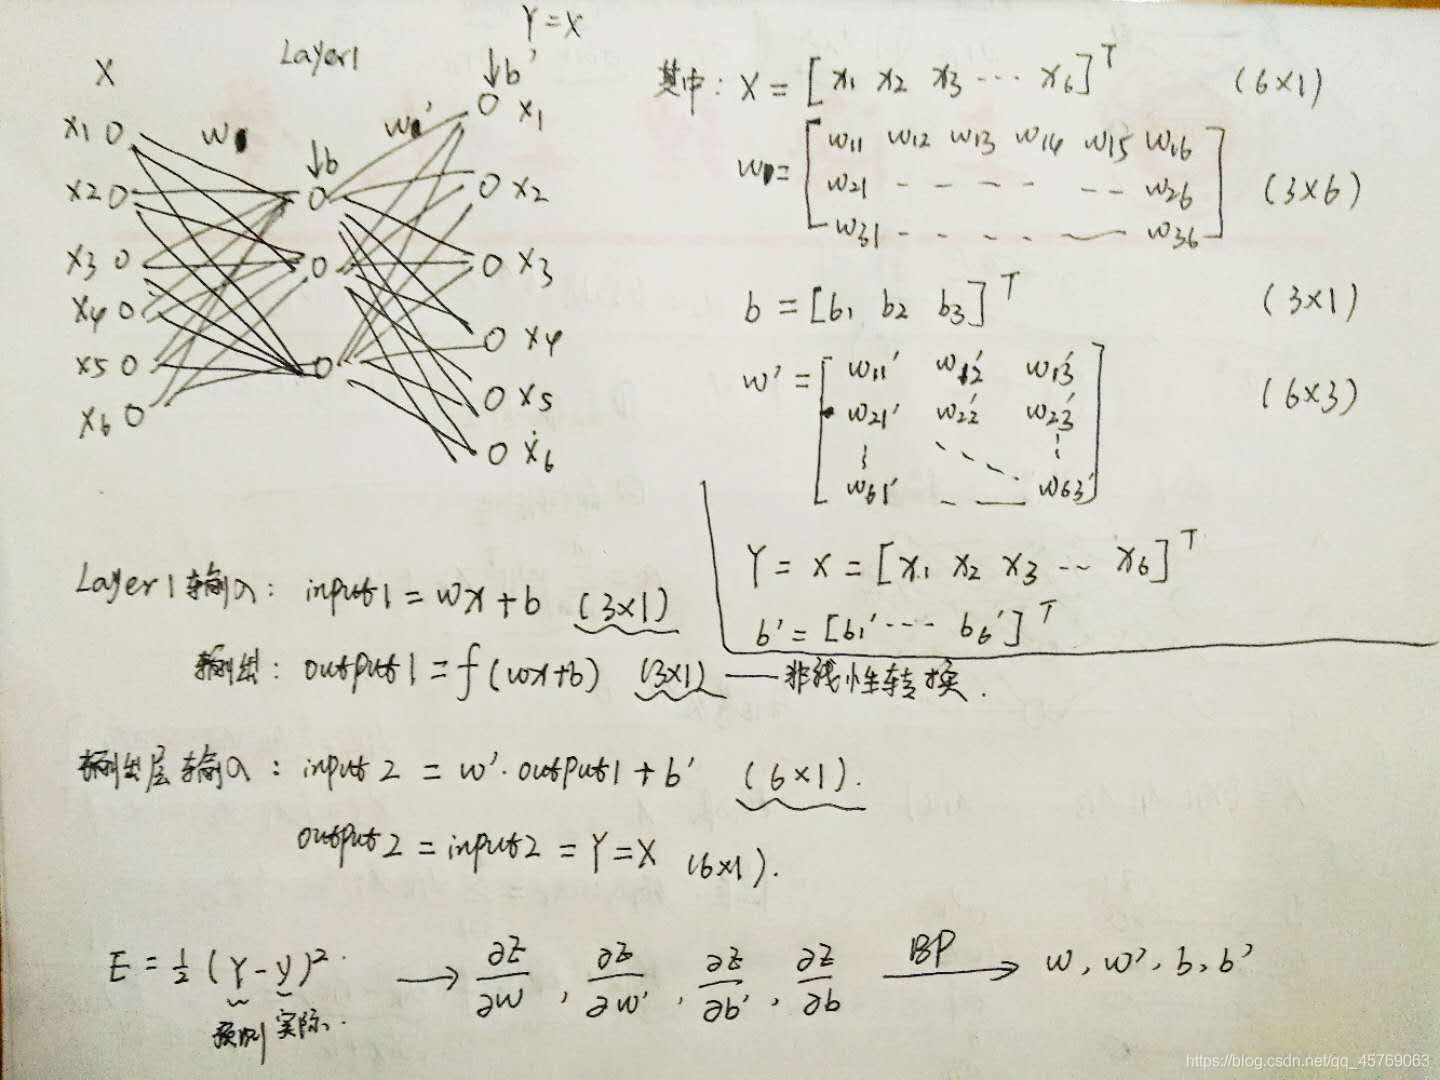 Y=X
X Layer1 ↓b'
x1 w w' x1
↓b
x2 x2
x3 x3
x4 x4
x5 x5
x6 x6
其中: X = [x1 x2 x3 ··· x6]ᵀ (6×1)
w = [w11 w12 w13 w14 w15 w16
w21 - - - - - - w26 (3×6)
w31 - - - - — — w36]
b = [b1 b2 b3]ᵀ (3×1)
w' = [w11' w12' w13'
w21' w22' w23' (6×3)
w61' - — w63']
Y = X = [x1 x2 x3 ··· x6]ᵀ
b' = [b1' ··· b6']ᵀ
Layer1输入: input1 = wx+b (3×1)
输出: output1 = f(wx+b) (3×1) — 非线性转换.
输出层输入: input2 = w'·output1+b' (6×1).
output2 = input2 = Y=X (6×1).
E = ½(Y-y)² → ∂E/∂w, ∂E/∂w', ∂E/∂b', ∂E/∂b BP→ w, w', b, b'
预测 实际.
https://blog.csdn.net/qq_45769063